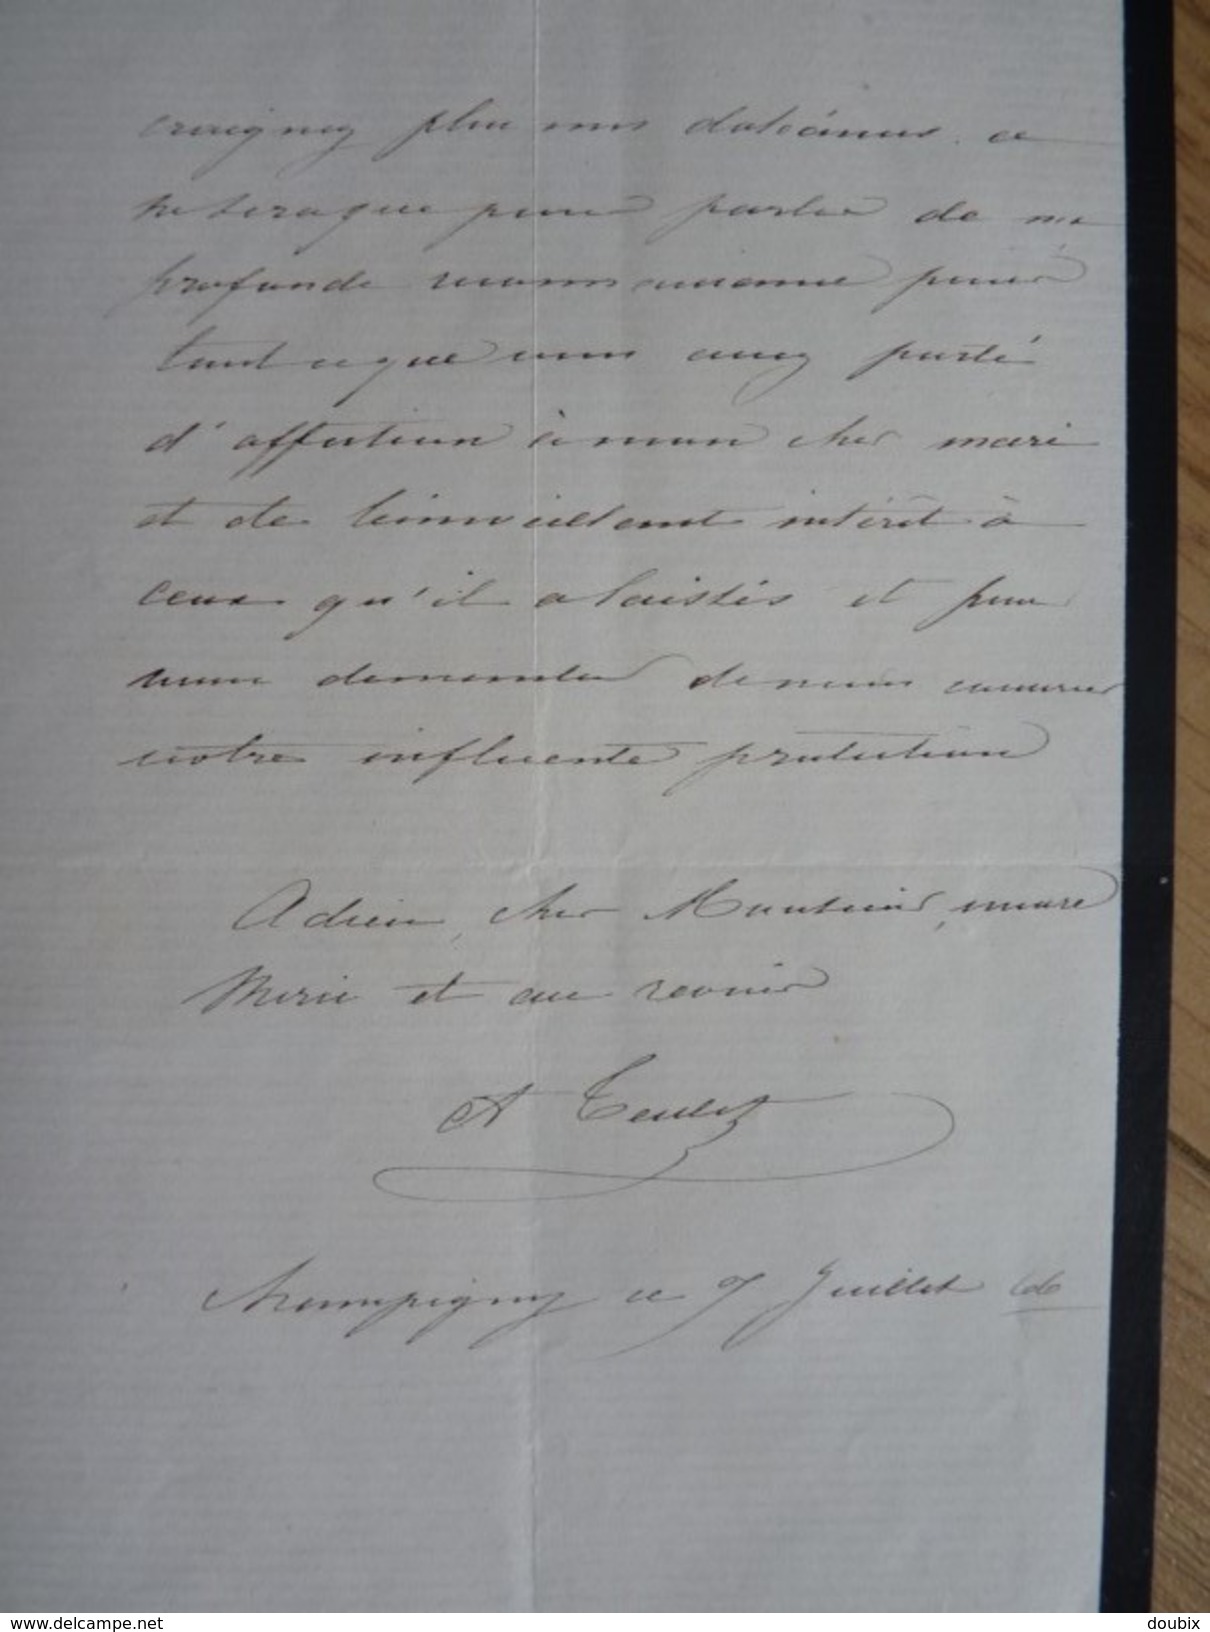 craignez plus mes doléances. ce
ne sera que pour parler de ma
profonde reconnaissance pour
tout ce que vous avez porté
d'affection à mon cher mari
et de bienveillant intérêt à
ceux qu'il a laissés et pour
vous demander de nous conserver
votre influente protection
Adieu, cher Monsieur, encore
Merci et au revoir
A Teulet
Champigny ce 7 Juillet 66
www.delcampe.net
doubix